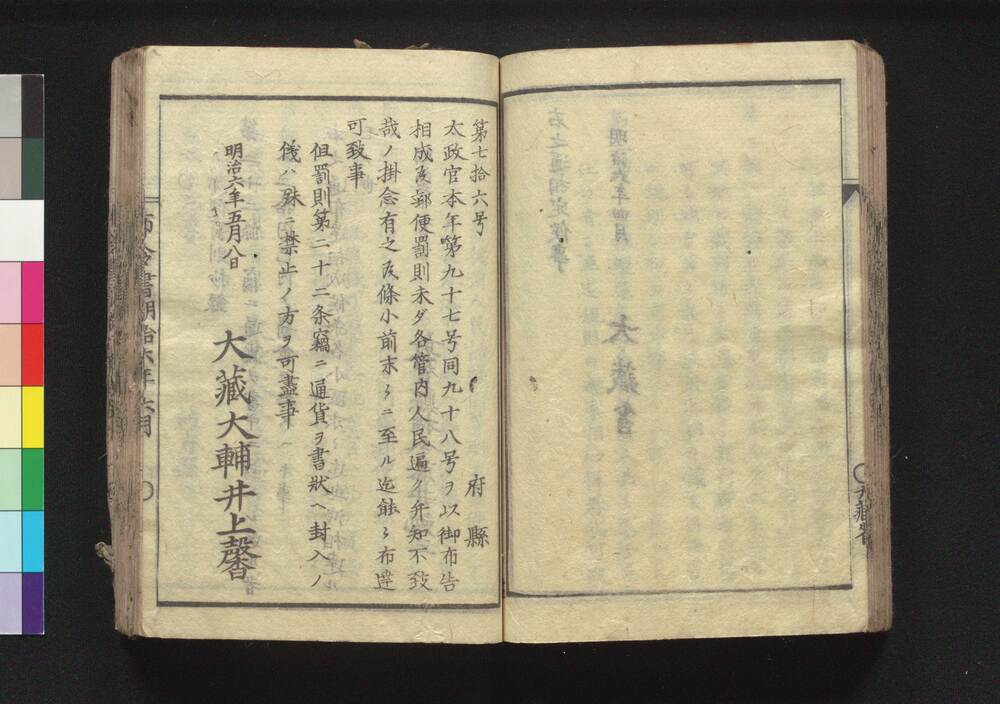 大藏省
第七拾六号
府縣
太政官本年第九十七号同九十八号ヲ以御布告
相成候郵便罰則未タ各管内人民遍ク弁知不致
哉ノ掛念有之候條小前末々ニ至ル迄能々布達
可致事
但罰則第二十二条竊ニ通貨ヲ書狀ヘ封入ノ
儀ハ殊ニ禁止ノ方ヲ可盡事
明治六年五月八日
大藏大輔井上馨
布令書明治六年六月